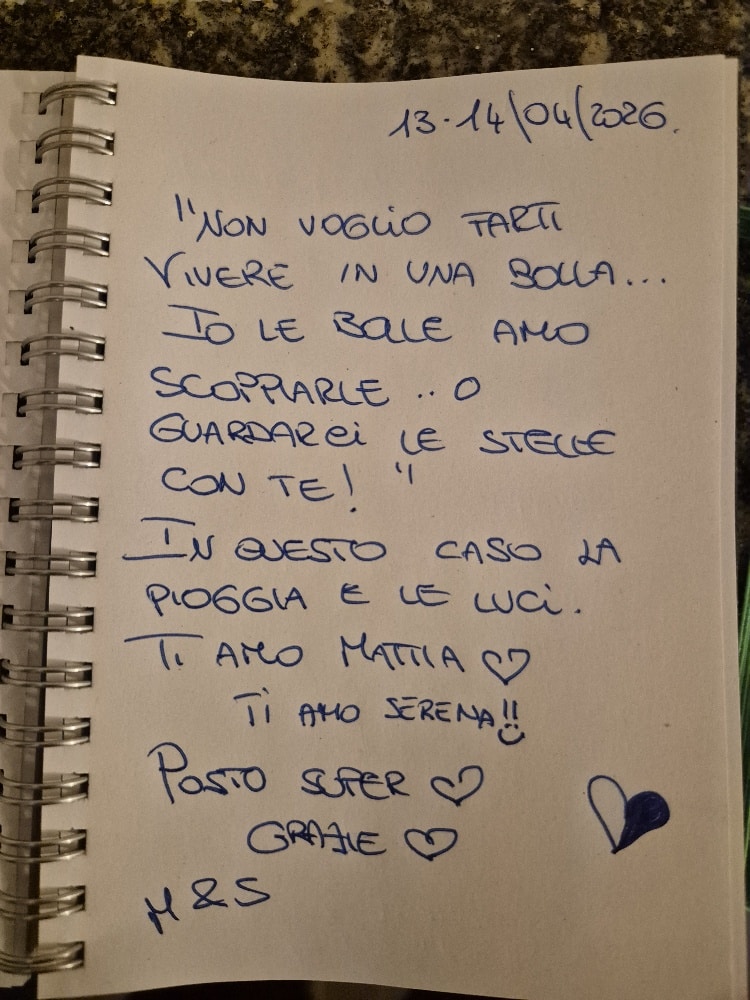 13-14/04/2026.
"NON VOGLIO FARTI
VIVERE IN UNA BOLLA...
IO LE BOLLE AMO
SCOPPIARLE .. O
GUARDARCi LE STELLE
CON TE! "
IN QUESTO CASO LA
PIOGGIA E LE LUCi.
TI AMO MATTIA ♡
Ti AMO SERENA!!
POSTO SUPER ♡
GRAZIE ♡
M & S